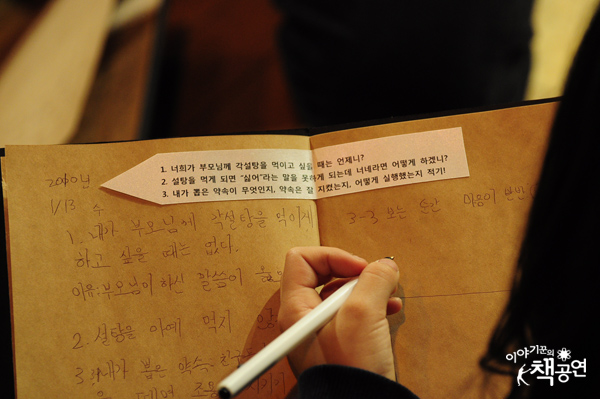 1. 너희가 부모님께 각설탕을 먹이고 싶을 때는 언제니?
2. 설탕을 먹게 되면 "싫어"라는 말을 못하게 되는데 너네라면 어떻게 하겠니?
3. 내가 뽑은 약속이 무엇인지, 약속은 잘 지켰는지, 어떻게 실행했는지 적기!
2010년
1/13 수
1. 내가 부모님에 각설탕을 먹이게
하고 싶을 때는 없다.
이유:부모님이 하신 말씀이
2. 설탕을 아예 먹기
3. 내가 뽑은 약속
3-3 모든 순간 마음이
이야기꾼의
책공연